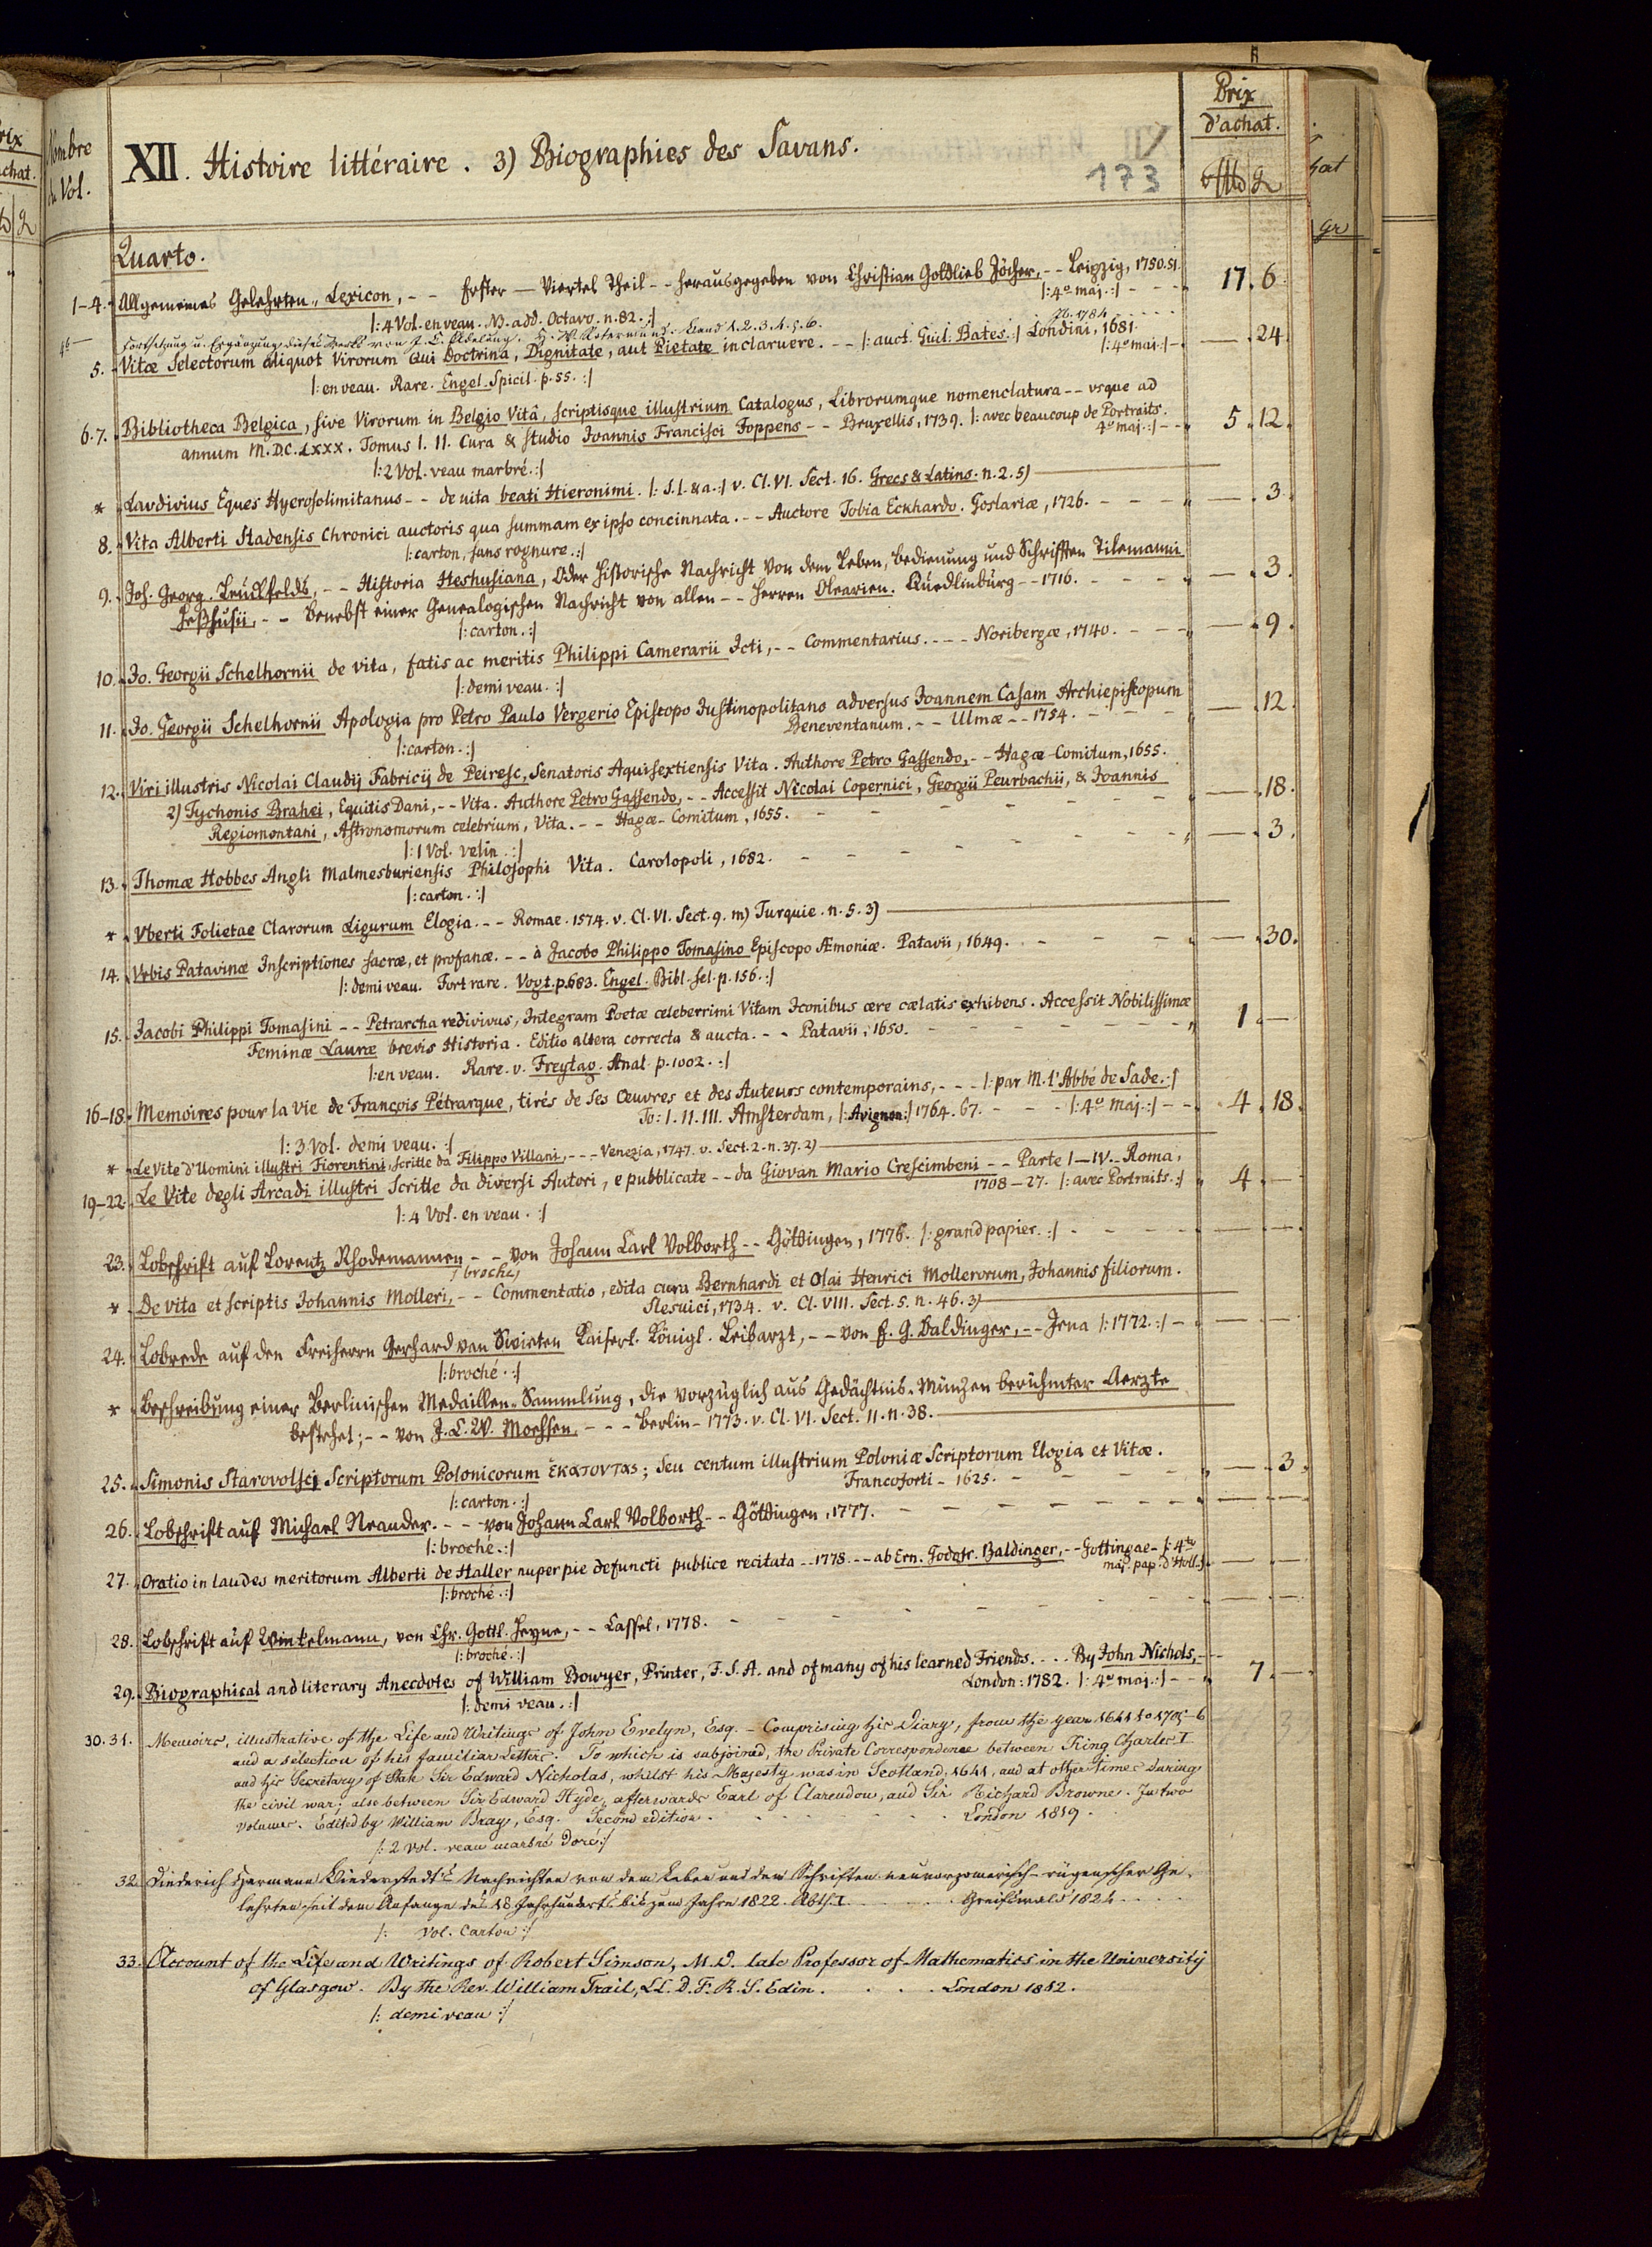 Prix
d'achat.
Nombre
du Vol.
XII. Histoire littéraire. 3) Biographies des Savans.
173
Quarto.
1-4. Allgemeines Gelehrten-Lexicon, - - Erster — Viertel Theil - - herausgegeben von Christian Gottlieb Jöcher, - - Leipzig, 1750.51.
|: 4º maj. :| - - - 17. 6.
|: 4 Vol. en veau. NB. add. Octavo. n. 82. :|
Fortsetzung u. Ergänzung dieses Werks von J. C. Adelung. H. W. Rotermund. Band 1. 2. 3. 4. 5. 6. 1784
5. Vitæ Selectorum aliquot Virorum qui Doctrina, Dignitate, aut Pietate inclaruere. - - |: auct. Guil. Bates. :| Londini, 1681.
|: 4º maj. :| - — . 24.
|: en veau. Rare. Engel. Spicil. p. 55. :|
6. 7. Bibliotheca Belgica, sive Virorum in Belgio Vitâ, scriptisque illustrium Catalogus, Librorumque nomenclatura - - vsque ad
annum M.D.C.LXXX. Tomus I. II. Cura & studio Joannis Francisci Foppens - - Bruxellis, 1739. |: avec beaucoup de Portraits.
4º maj. :| - - 5. 12.
|: 2 Vol. veau marbré. :|
* Lavdivius Eques Hyerosolimitanus - - de uita beati Hieronimi. |: S. l. & a. :| v. Cl. VI. Sect. 16. Grecs & Latins. n. 2. 5)
8. Vita Alberti Stadensis Chronici auctoris qua summam ex ipso concinnata. - - Auctore Tobia Eckhardo. Goslariæ, 1726. - - - — . 3.
|: carton, sans rognure. :|
9. Joh. Georg. Leuckfelds, - - Historia Heshusiana, Oder Historische Nachricht Von dem Leben, Bedienung und Schrifften Tilemanni
Heßhusii, - - Benebst einer Genealogischen Nachricht von allen - - Herren Olearien. Quedlinburg - - 1716. - - - — . 3.
|: carton. :|
10. Jo. Georgii Schelhornii de vita, fatis ac meritis Philippi Camerarii Icti, - - Commentarius. - - - Noribergæ, 1740. - - - — . 9.
|: demi veau. :|
11. Jo. Georgii Schelhornii Apologia pro Petro Paulo Vergerio Episcopo Justinopolitano adversus Joannem Casam Archiepiscopum
Beneventanum. - - Ulmæ - - 1754. - - - — . 12.
|: carton. :|
12. Viri illustris Nicolai Claudij Fabricij de Peiresc, Senatoris Aquisextiensis Vita. Authore Petro Gassendo, - - Hagæ-Comitum, 1655.
2) Tychonis Brahei, Equitis Dani, - - Vita. Authore Petro Gassendo, - - Accessit Nicolai Copernici, Georgii Peurbachii, & Joannis
Regiomontani, Astronomorum celebrium, Vita. - - Hagæ-Comitum, 1655. - - - — . 18.
|: 1 Vol. velin. :|
13. Thomæ Hobbes Angli Malmesburiensis Philosophi Vita. Carolopoli, 1682. - - - — . 3.
|: carton. :|
* Vberti Folietae Clarorum Ligurum Elogia. - - Romae. 1574. v. Cl. VI. Sect. 9. m) Turquie. n. 5. 3)
14. Vrbis Patavinæ Inscriptiones sacræ, et profanæ. - - à Jacobo Philippo Tomasino Episcopo Æmoniæ. Patavii, 1649. - - - — . 30.
|: demi veau. Fort rare. Vogt. p. 683. Engel. Bibl. sel. p. 156. :|
15. Jacobi Philippi Tomasini - - Petrarcha redivivus, Integram Poetæ celeberrimi Vitam Iconibus ære cælatis exhibens. Accessit Nobilissimæ
Feminæ Lauræ brevis Historia. Editio altera correcta & aucta. - - Patavii, 1650. - - - 1. —
|: en veau. Rare. v. Freytag. Anal. p. 1002. :|
16-18. Memoires pour la vie de François Pétrarque, tirés de ses Œuvres et des Auteurs contemporains, - - - |: par M. l'Abbé de Sade. :|
To: I. II. III. Amsterdam, |: Avignon :| 1764. 67. - - - |: 4º maj. :| - - 4. 18.
|: 3 Vol. demi veau. :|
* Le Vite d'Uomini illustri Fiorentini, scritte da Filippo Villani, - - - Venezia, 1747. v. Sect. 2. n. 37. 2)
19-22. Le Vite degli Arcadi illustri Scritte da diversi Autori, e pubblicate - - da Giovan Mario Crescimbeni - - Parte I—IV. - Roma,
1708-27. |: avec Portraits. :| 4. —
|: 4 Vol. en veau. :|
23. Lobschrift auf Lorentz Rhodemannen - - von Johann Carl Volborth - - Göttingen, 1776. |: grand papier. :| - - -
|: broché
* De vita et scriptis Johannis Molleri, - - Commentatio, edita cura Bernhardi et Olai Henrici Mollerorum, Johannis filiorum.
Slesuici, 1734. v. Cl. VIII. Sect. 5. n. 46. 3)
24. Lobrede auf den Freiherrn Gerhard van Swieten Kaiserl. Königl. Leibarzt, - - von E. G. Baldinger, - - Jena |: 1772. :| - — —
|: broché. :|
* Beschreibung einer Berlinischen Medaillen-Sammlung, die vorzüglich aus Gedächtnis-Münzen berühmter Aerzte
bestehet; - - von J. C. W. Moehsen. - - - Berlin - 1773. v. Cl. VI. Sect. 11. n. 38.
25. Simonis Starovolsci Scriptorum Polonicorum Ἑκατοντὰς; seu centum illustrium Poloniæ Scriptorum Elogia et Vitæ.
Francoforti - 1625. - - - — 3.
|: carton. :|
26. Lobschrift auf Michael Neander. - - - von Johann Carl Volborth - - Göttingen, 1777. - - - — —
|: broché. :|
27. Oratio in laudes meritorum Alberti de Haller nuper pie defuncti publice recitata - - 1778. - - ab Ern. Godofr. Baldinger, - - Gottingae - |: 4to
maj. pap. d'Holl. :| — —
|: broché. :|
28. Lobschrift auf Winkelmann, von Chr. Gottl. Heyne, - - Cassel, 1778. - - - — —
|: broché. :|
29. Biographical and literary Anecdotes of William Bowyer, Printer, F. S. A. and of many of his learned Friends. . . . By John Nichols, - -
London: 1782. |: 4º maj. :| - - 7. —
|: demi veau. :|
30. 31. Memoirs, illustrative of the Life and Writings of John Evelyn, Esq. - Comprising his Diary, from the year 1641 to 1705-6
and a selection of his familiar Letters. To which is subjoined, the Private Correspondence between King Charles I
and his Secretary of State Sir Edward Nicholas, whilst his Majesty was in Scotland, 1641, and at other times during
the civil war; also between Sir Edward Hyde, afterwards Earl of Clarendon, and Sir Richard Browne. In two
volumes. Edited by William Bray, Esq. Second edition. . . . London 1819.
|: 2 Vol. veau marbré doré :|
32. Diederich Hermann Biederstedt's Nachrichten von dem Leben und den Schriften neuvorpomerisch-rügenscher Ge-
lehrten seit dem Anfange des 18 Jahrhunderts bis zum Jahre 1822. Abth. I. . . . Greifswald 1824. . . .
|: Vol. Carton :|
33. Account of the Life and Writings of Robert Simson, M. D. late Professor of Mathematics in the University
of Glasgow. By the Rev. William Trail, LL. D. F. R. S. Edin. . . . London 1812.
|: demi veau :|